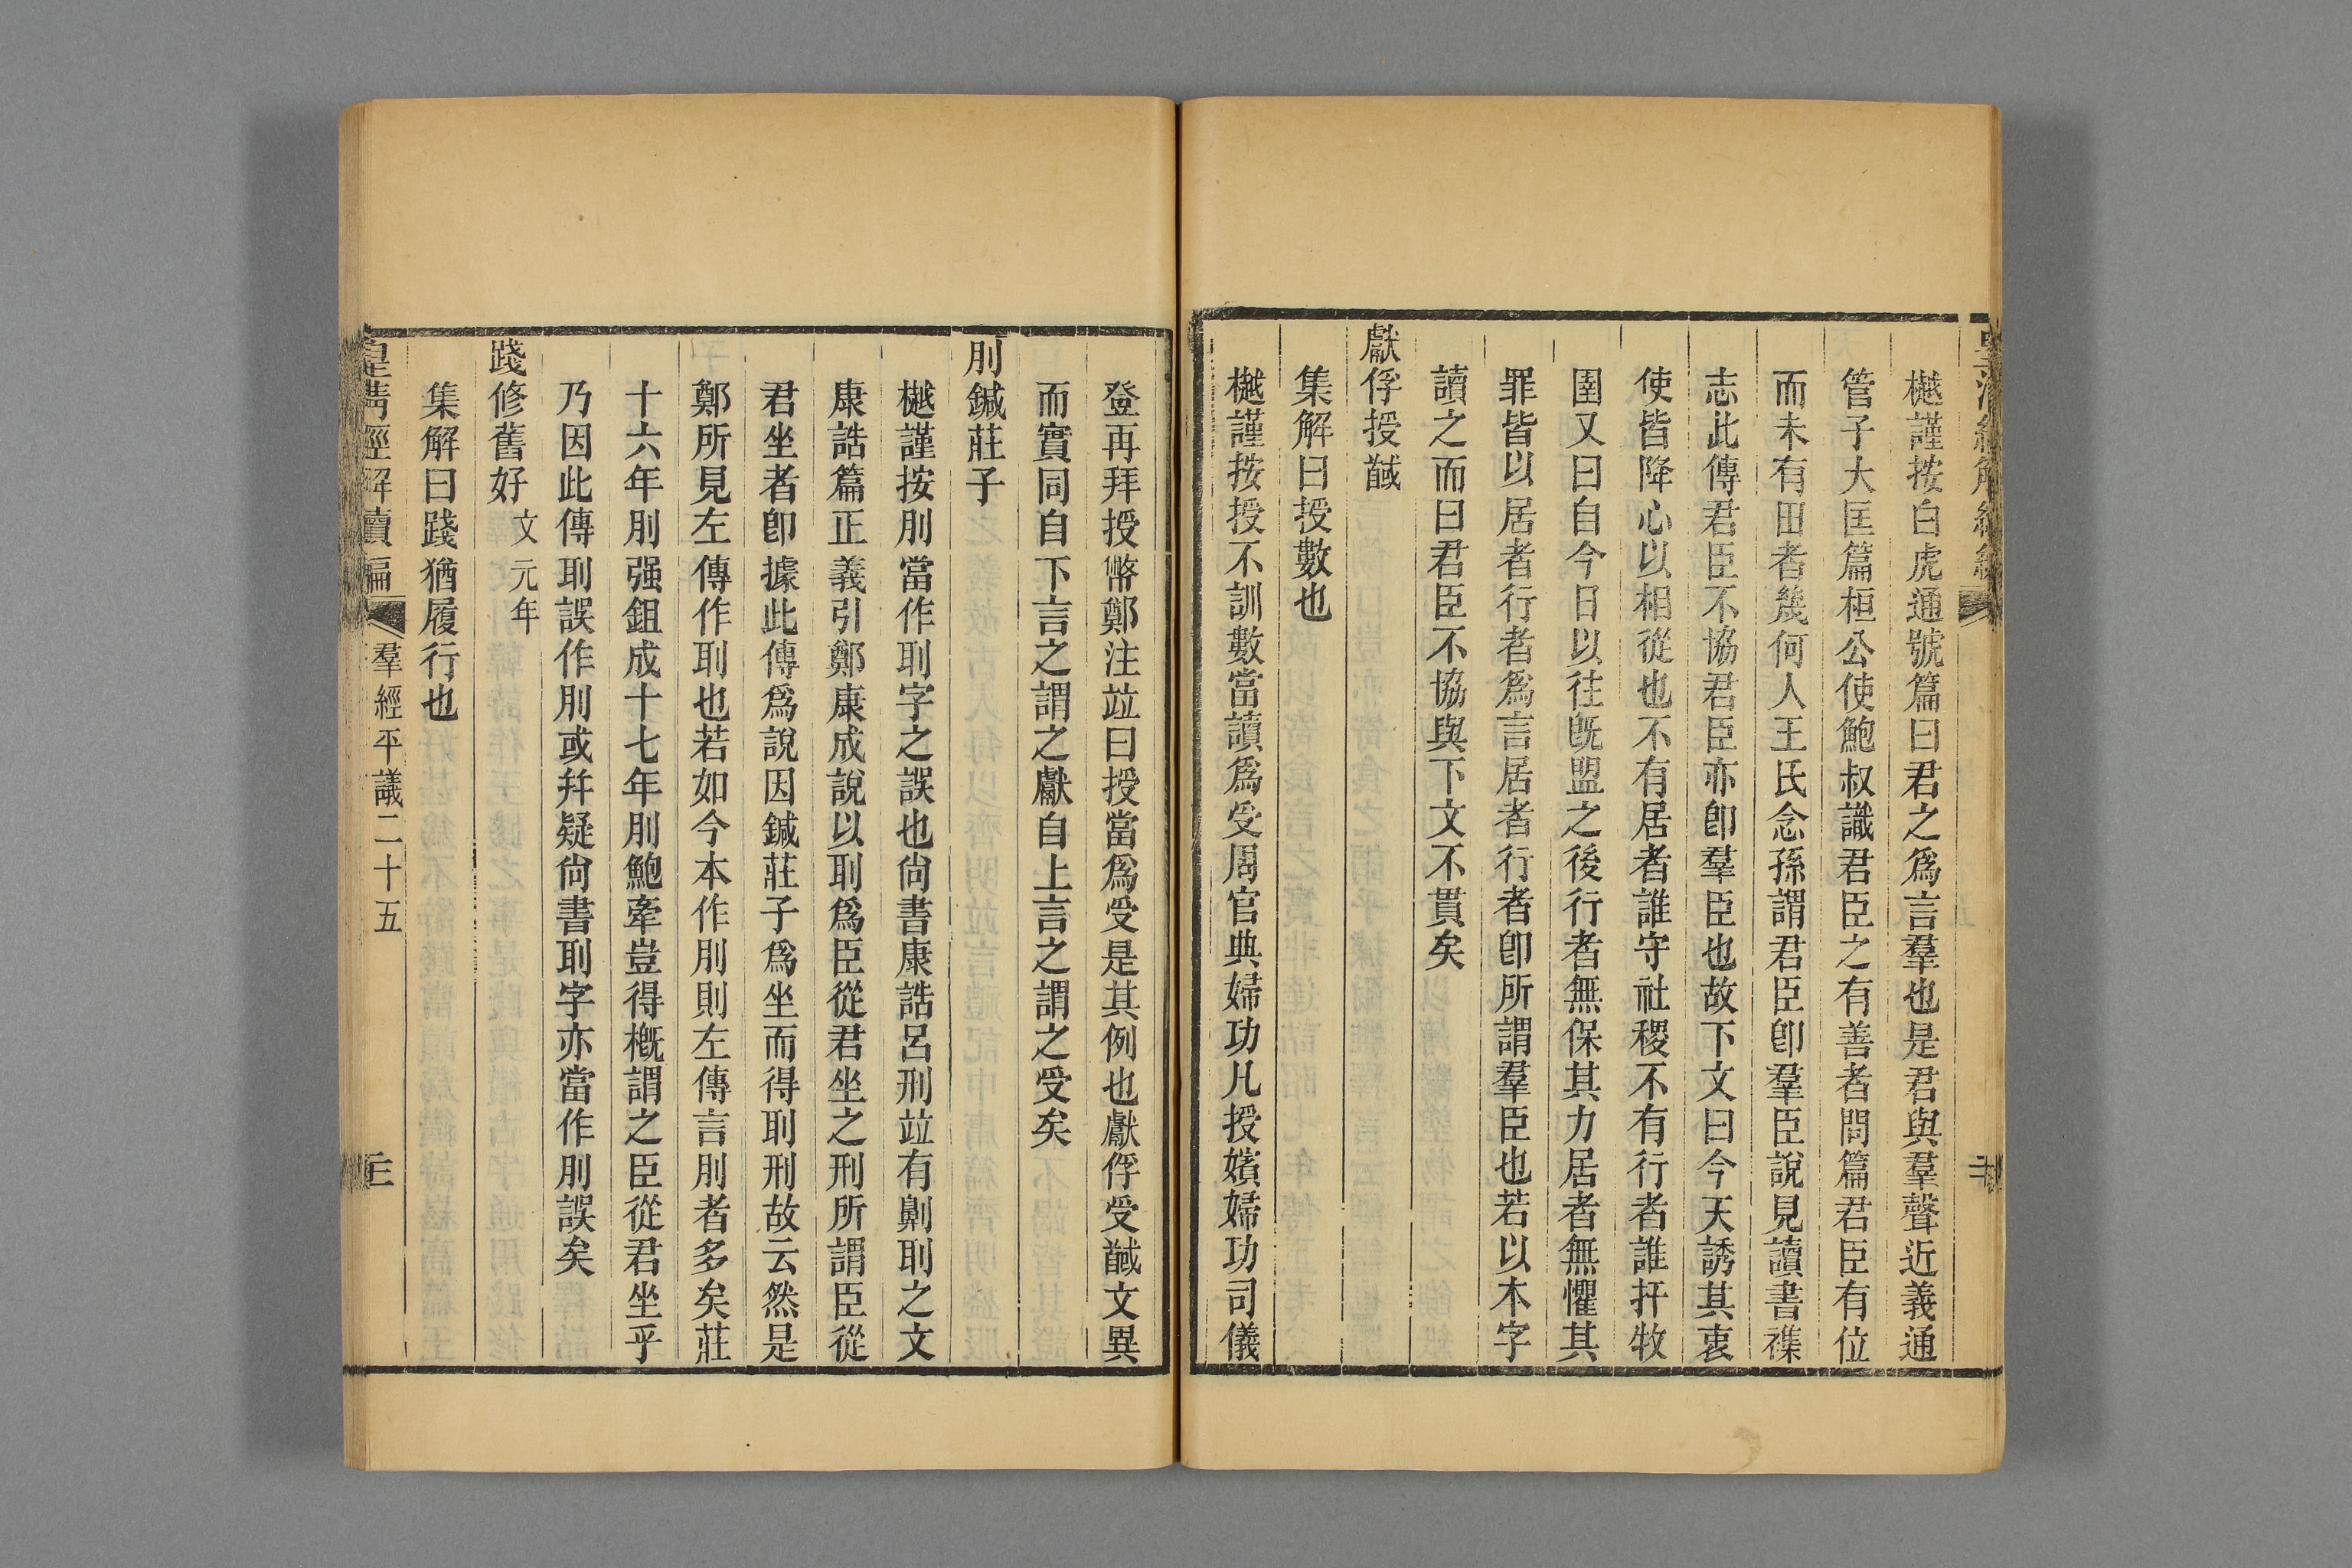 樾謹按白虎通號篇曰君之爲言羣也是君與羣聲近義通
管子大匡篇桓公使鮑叔識君臣之有善者問篇君臣有位
而未有田者幾何人王氏念孫謂君臣卽羣臣說見讀書襍
志此傳君臣不協君臣亦卽羣臣也故下文曰今天誘其衷
使皆降心以相從也不有居者誰守社稷不有行者誰扞牧
圉又曰自今日以往旣盟之後行者無保其力居者無懼其
罪皆以居者行者爲言居者行者卽所謂羣臣也若以本字
讀之而曰君臣不協與下文不貫矣
獻俘授馘
集解曰授數也
樾謹按授不訓數當讀爲受周官典婦功凡授嬪婦功司儀
登再拜授幣鄭注竝曰授當爲受是其例也獻俘受馘文異
而實同自下言之謂之獻自上言之謂之受矣
刖鍼莊子
樾謹按刖當作刵字之誤也尙書康誥呂刑竝有劓刵之文
康誥篇正義引鄭康成說以刵爲臣從君坐之刑所謂臣從
君坐者卽據此傳爲說因鍼莊子爲坐而得刵刑故云然是
鄭所見左傳作刵也若如今本作刖則左傳言刖者多矣莊
十六年刖强鉏成十七年刖鮑牽豈得槪謂之臣從君坐乎
乃因此傳刵誤作刖或幷疑尙書刵字亦當作刖誤矣
踐修舊好 文元年
集解曰踐猶履行也
皇淸經解續編 羣經平議二十五